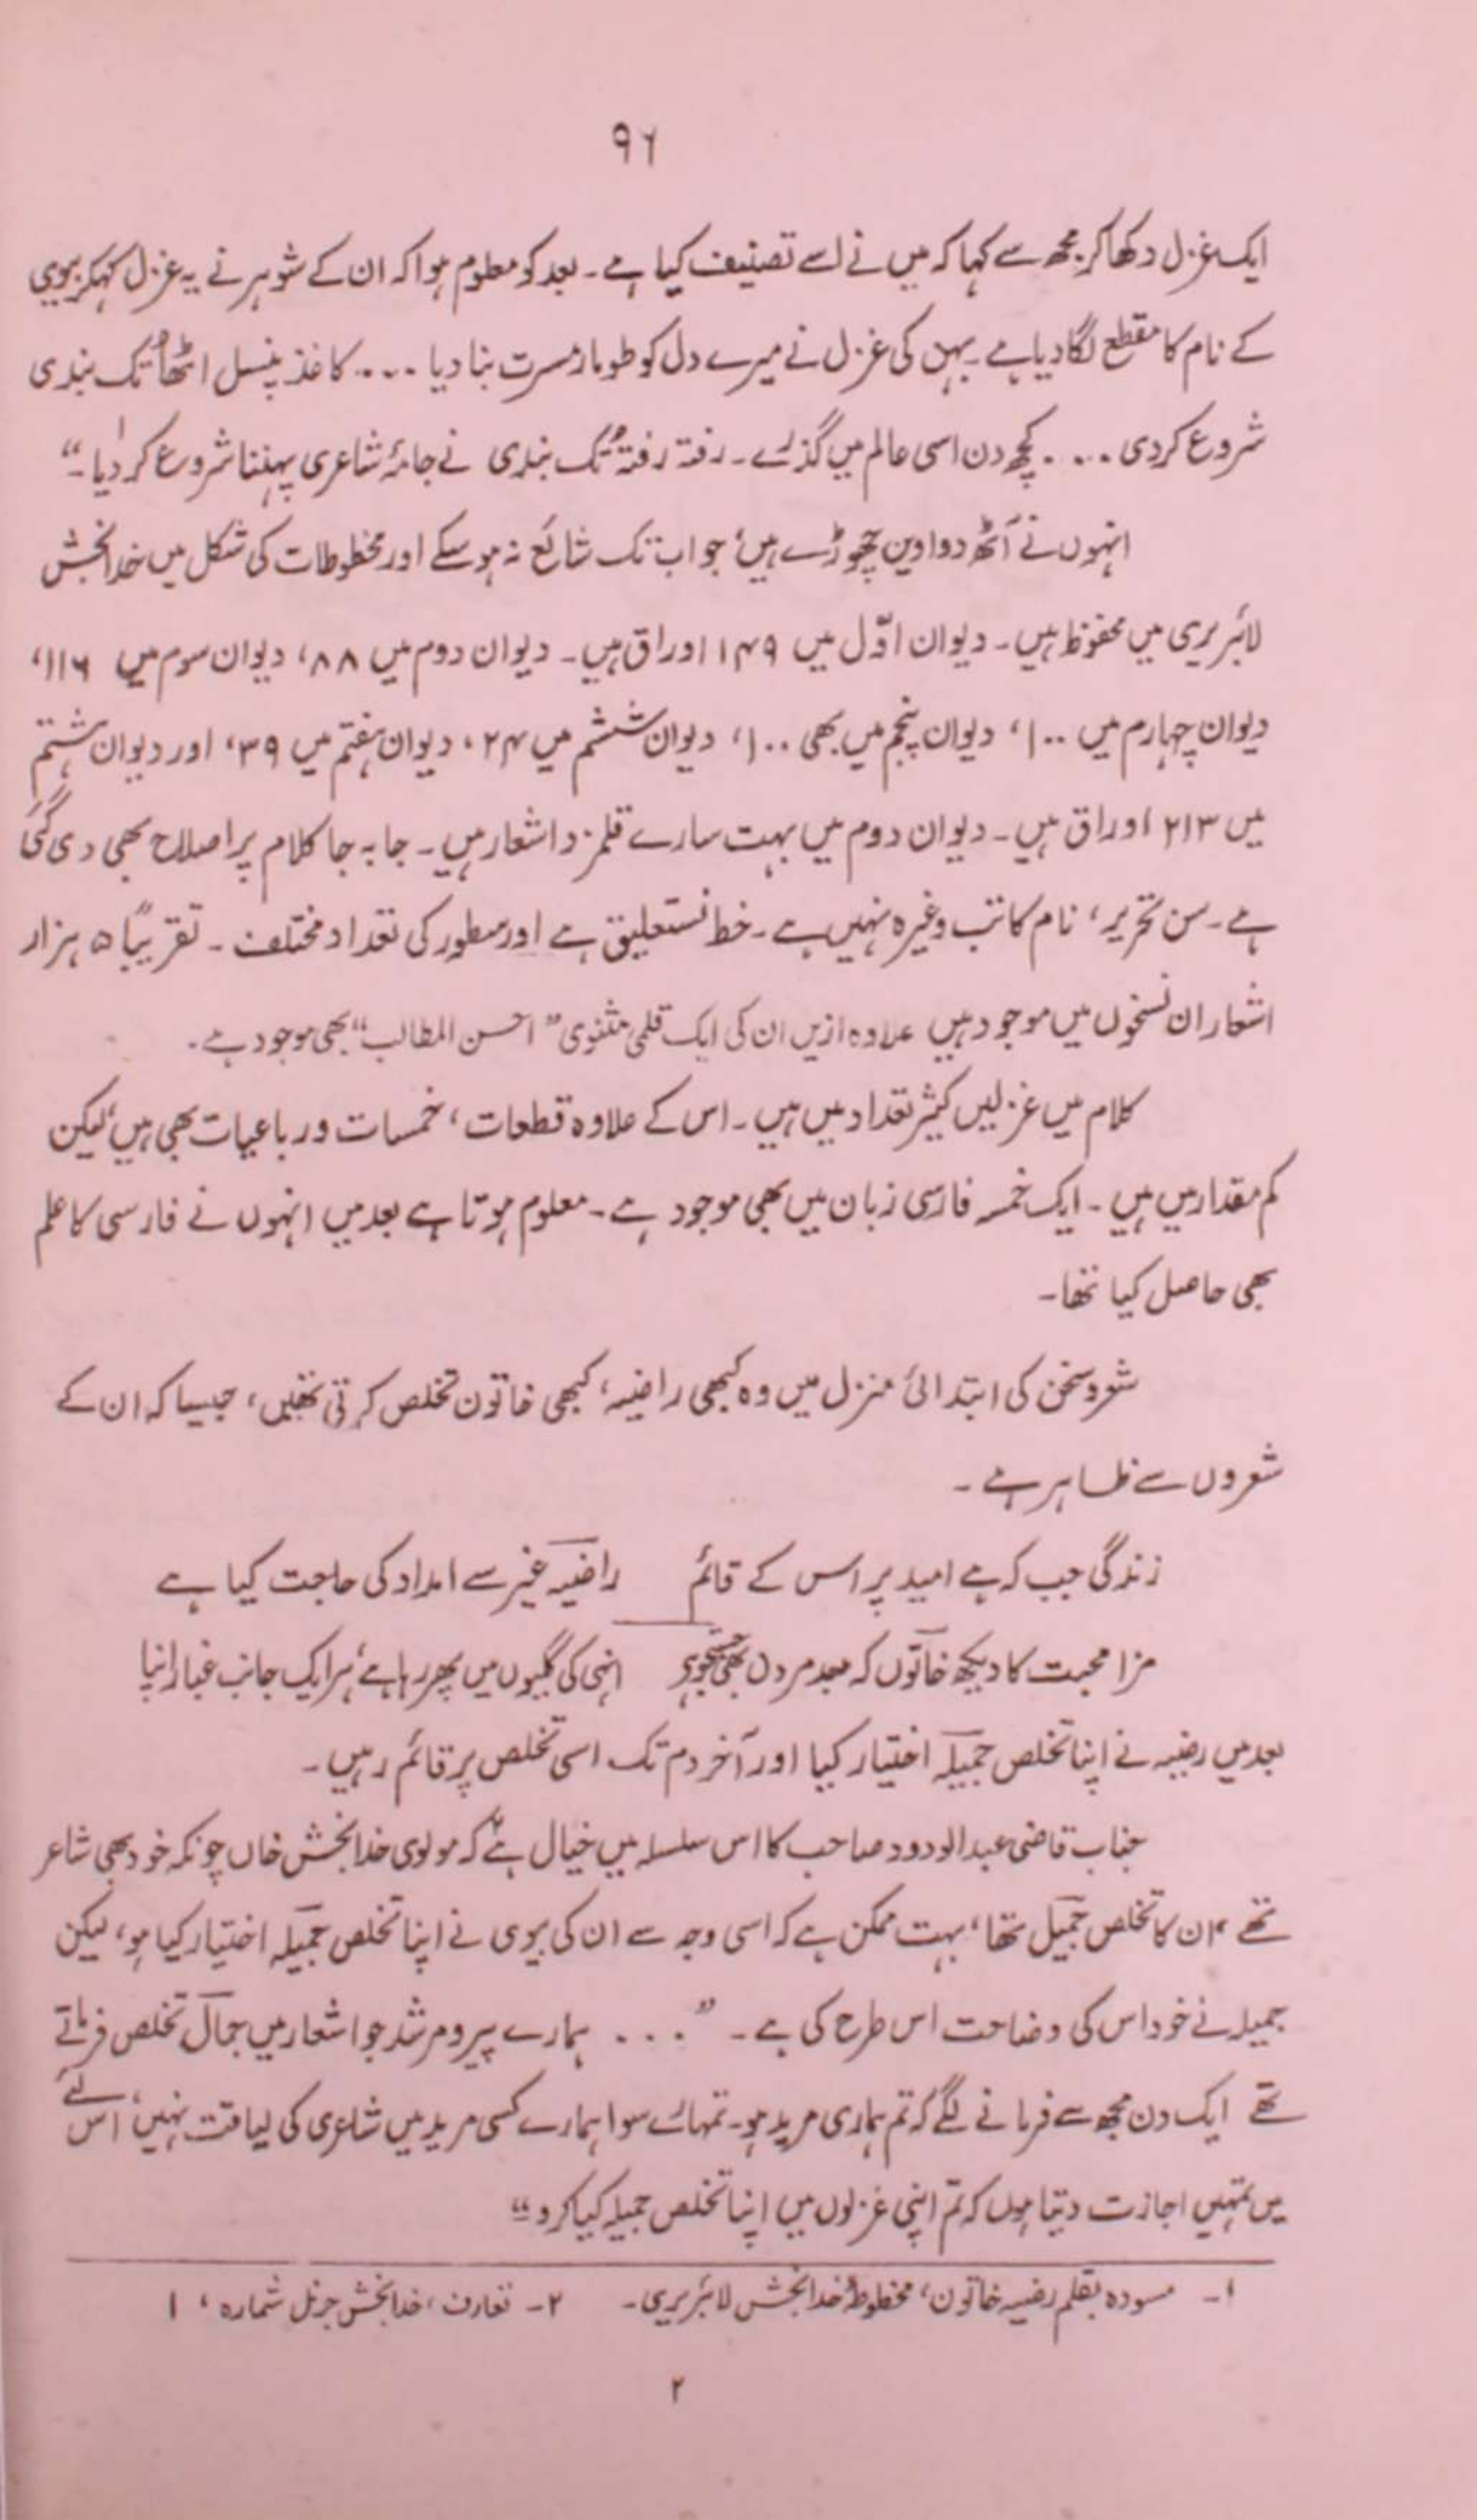 ۹۶
ایک غزل دکھا کر مجھ سے کہا کہ میں نے اسے تصنیف کیا ہے۔ بعد کو معلوم ہوا کہ ان کے شوہر نے یہ غزل کہکر بیوی
کے نام کا مقطع لگا دیا ہے۔ بہن کی غزل نے میرے دل کو طومار مسرت بنا دیا ۔۔۔۔ کاغذ پنسل اٹھا تُک بندی
شروع کردی ۔۔۔۔ کچھ دن اسی عالم میں گذرے۔ رفتہ رفتہ تُک بندی نے جامۂ شاعری پہننا شروع کر دیا۔"۱
انہوں نے آٹھ دواوین چھوڑے ہیں، جو اب تک شائع نہ ہو سکے اور مخطوطات کی شکل میں خدا بخش
لائبریری میں محفوظ ہیں۔ دیوان اوّل میں ۱۴۹ اوراق ہیں۔ دیوان دوم میں ۸۸، دیوان سوم میں ۱۱۶،
دیوان چہارم میں ۱۰۰، دیوان پنجم میں بھی ۱۰۰، دیوان ششم میں ۲۴، دیوان ہفتم میں ۳۹، اور دیوان ہشتم
میں ۲۱۳ اوراق ہیں۔ دیوان دوم میں بہت سارے قلمزد اشعار ہیں۔ جا بہ جا کلام پر اصلاح بھی دی گئی
ہے۔ سن تحریر، نام کاتب وغیرہ نہیں ہے۔ خط نستعلیق ہے اور سطور کی تعداد مختلف۔ تقریباً ۵ ہزار
اشعار ان نسخوں میں موجود ہیں علاوہ ازیں ان کی ایک قلمی مثنوی "احسن المطالب" بھی موجود ہے۔
کلام میں غزلیں کثیر تعداد میں ہیں۔ اس کے علاوہ قطعات، خمسات و رباعیات بھی ہیں، لیکن
کم مقدار میں ہیں۔ ایک خمسہ فارسی زبان میں بھی موجود ہے۔ معلوم ہوتا ہے بعد میں انہوں نے فارسی کا علم
بھی حاصل کیا تھا۔
شعر و سخن کی ابتدائی منزل میں وہ کبھی راضیہ، کبھی خاتون تخلص کرتی تھیں، جیسا کہ ان کے
شعروں سے ظاہر ہے۔
زندگی جب کہ ہے امید پر اس کے قائم راضیہ غیر سے امداد کی حاجت کیا ہے
مزا محبت کا دیکھ خاتوں کہ بعد مردن بھی جستجو پر انہی کی گلیوں میں پھر رہا ہے، ہر ایک جانب غبار اپنا
بعد میں رضیہ نے اپنا تخلص جمیلہ اختیار کیا اور آخر دم تک اسی تخلص پر قائم رہیں۔
جناب قاضی عبدالودود صاحب کا اس سلسلہ میں خیال ہے۲ کہ مولوی خدا بخش خاں چونکہ خود بھی شاعر
تھے، ان کا تخلص جمیل تھا، بہت ممکن ہے کہ اسی وجہ سے ان کی بیوی نے اپنا تخلص جمیلہ اختیار کیا ہو، لیکن
جمیلہ نے خود اس کی وضاحت اس طرح کی ہے۔ "۔۔۔۔ ہمارے پیر و مرشد جو اشعار میں جمال تخلص فرماتے
تھے ایک دن مجھ سے فرمانے لگے کہ تم ہماری مرید ہو۔ تمہارے سوا ہمارے کسی مرید میں شاعری کی لیاقت نہیں، اس لئے
میں تمہیں اجازت دیتا ہوں کہ تم اپنی غزلوں میں اپنا تخلص جمیلہ کیا کرو۔"
۱۔ مسودہ بقلم رضیہ خاتون، مخطوطہ خدا بخش لائبریری۔ ۲۔ تعارف، خدا بخش جرنل شمارہ، ۱
۲